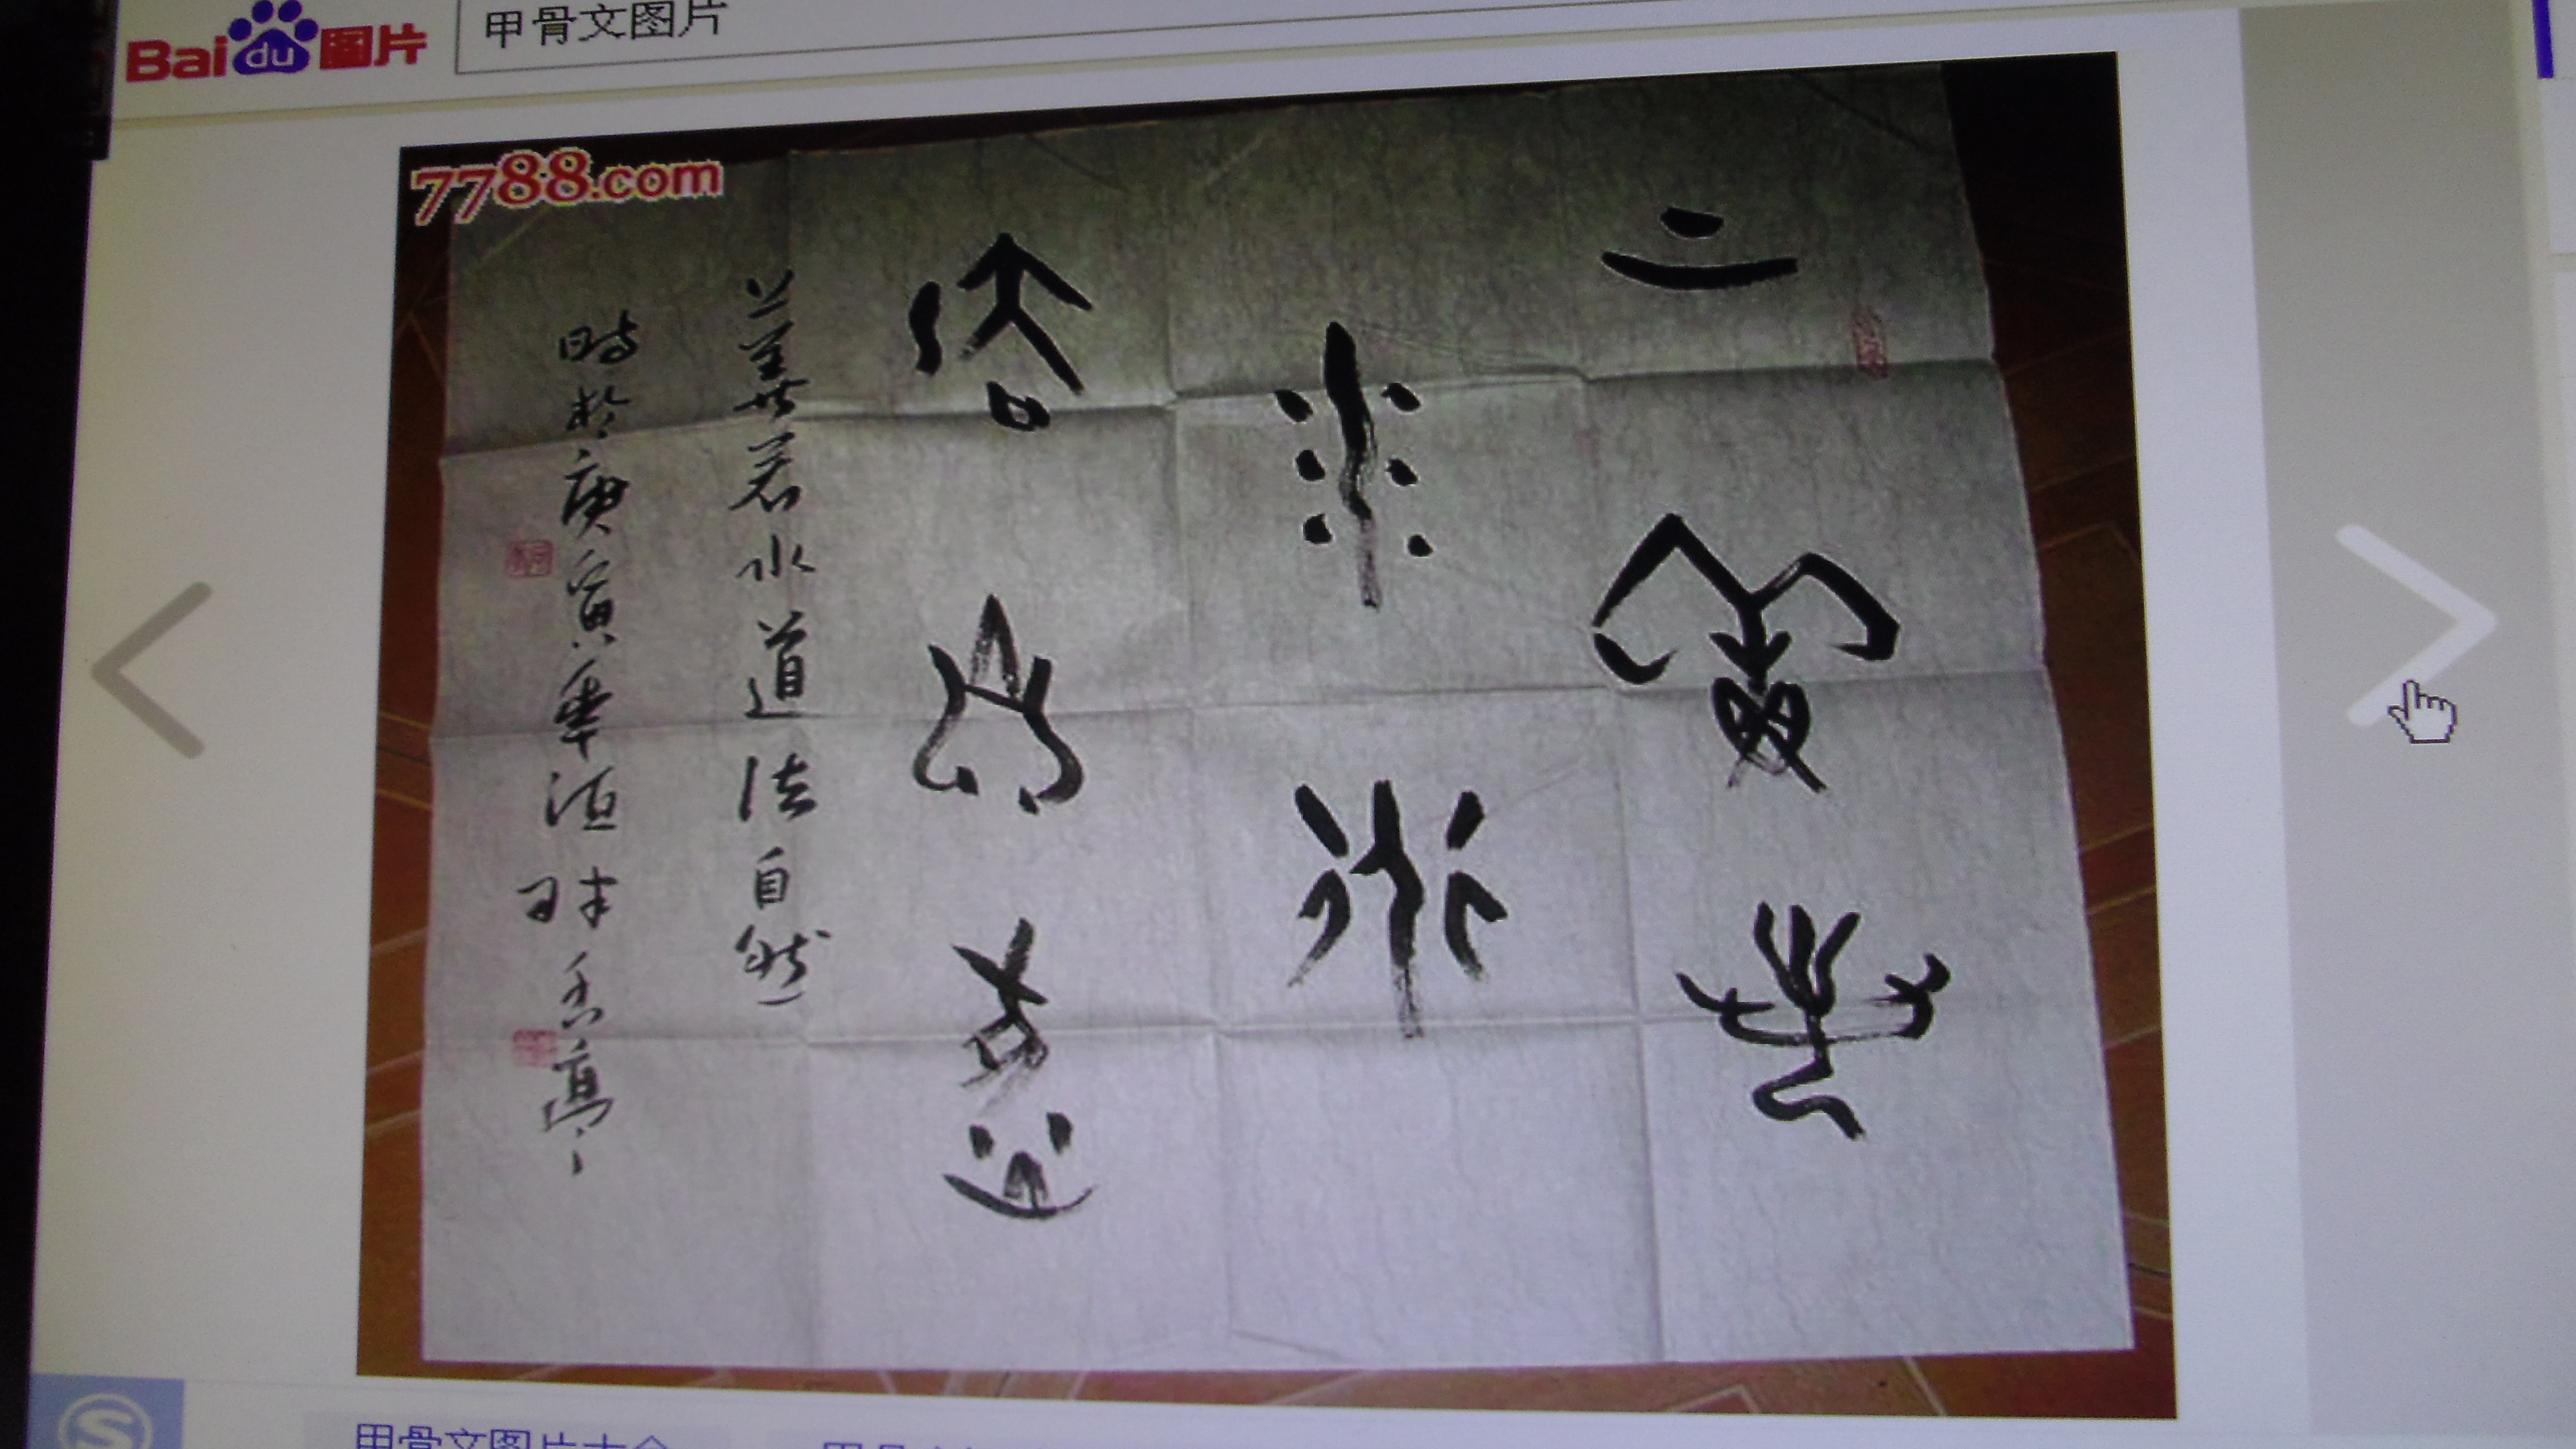 Bai du 图片
甲骨文图片
7788.com
上善若
水道
法自然
上善若水道法自然
時於庚寅年
甲骨文图片大全